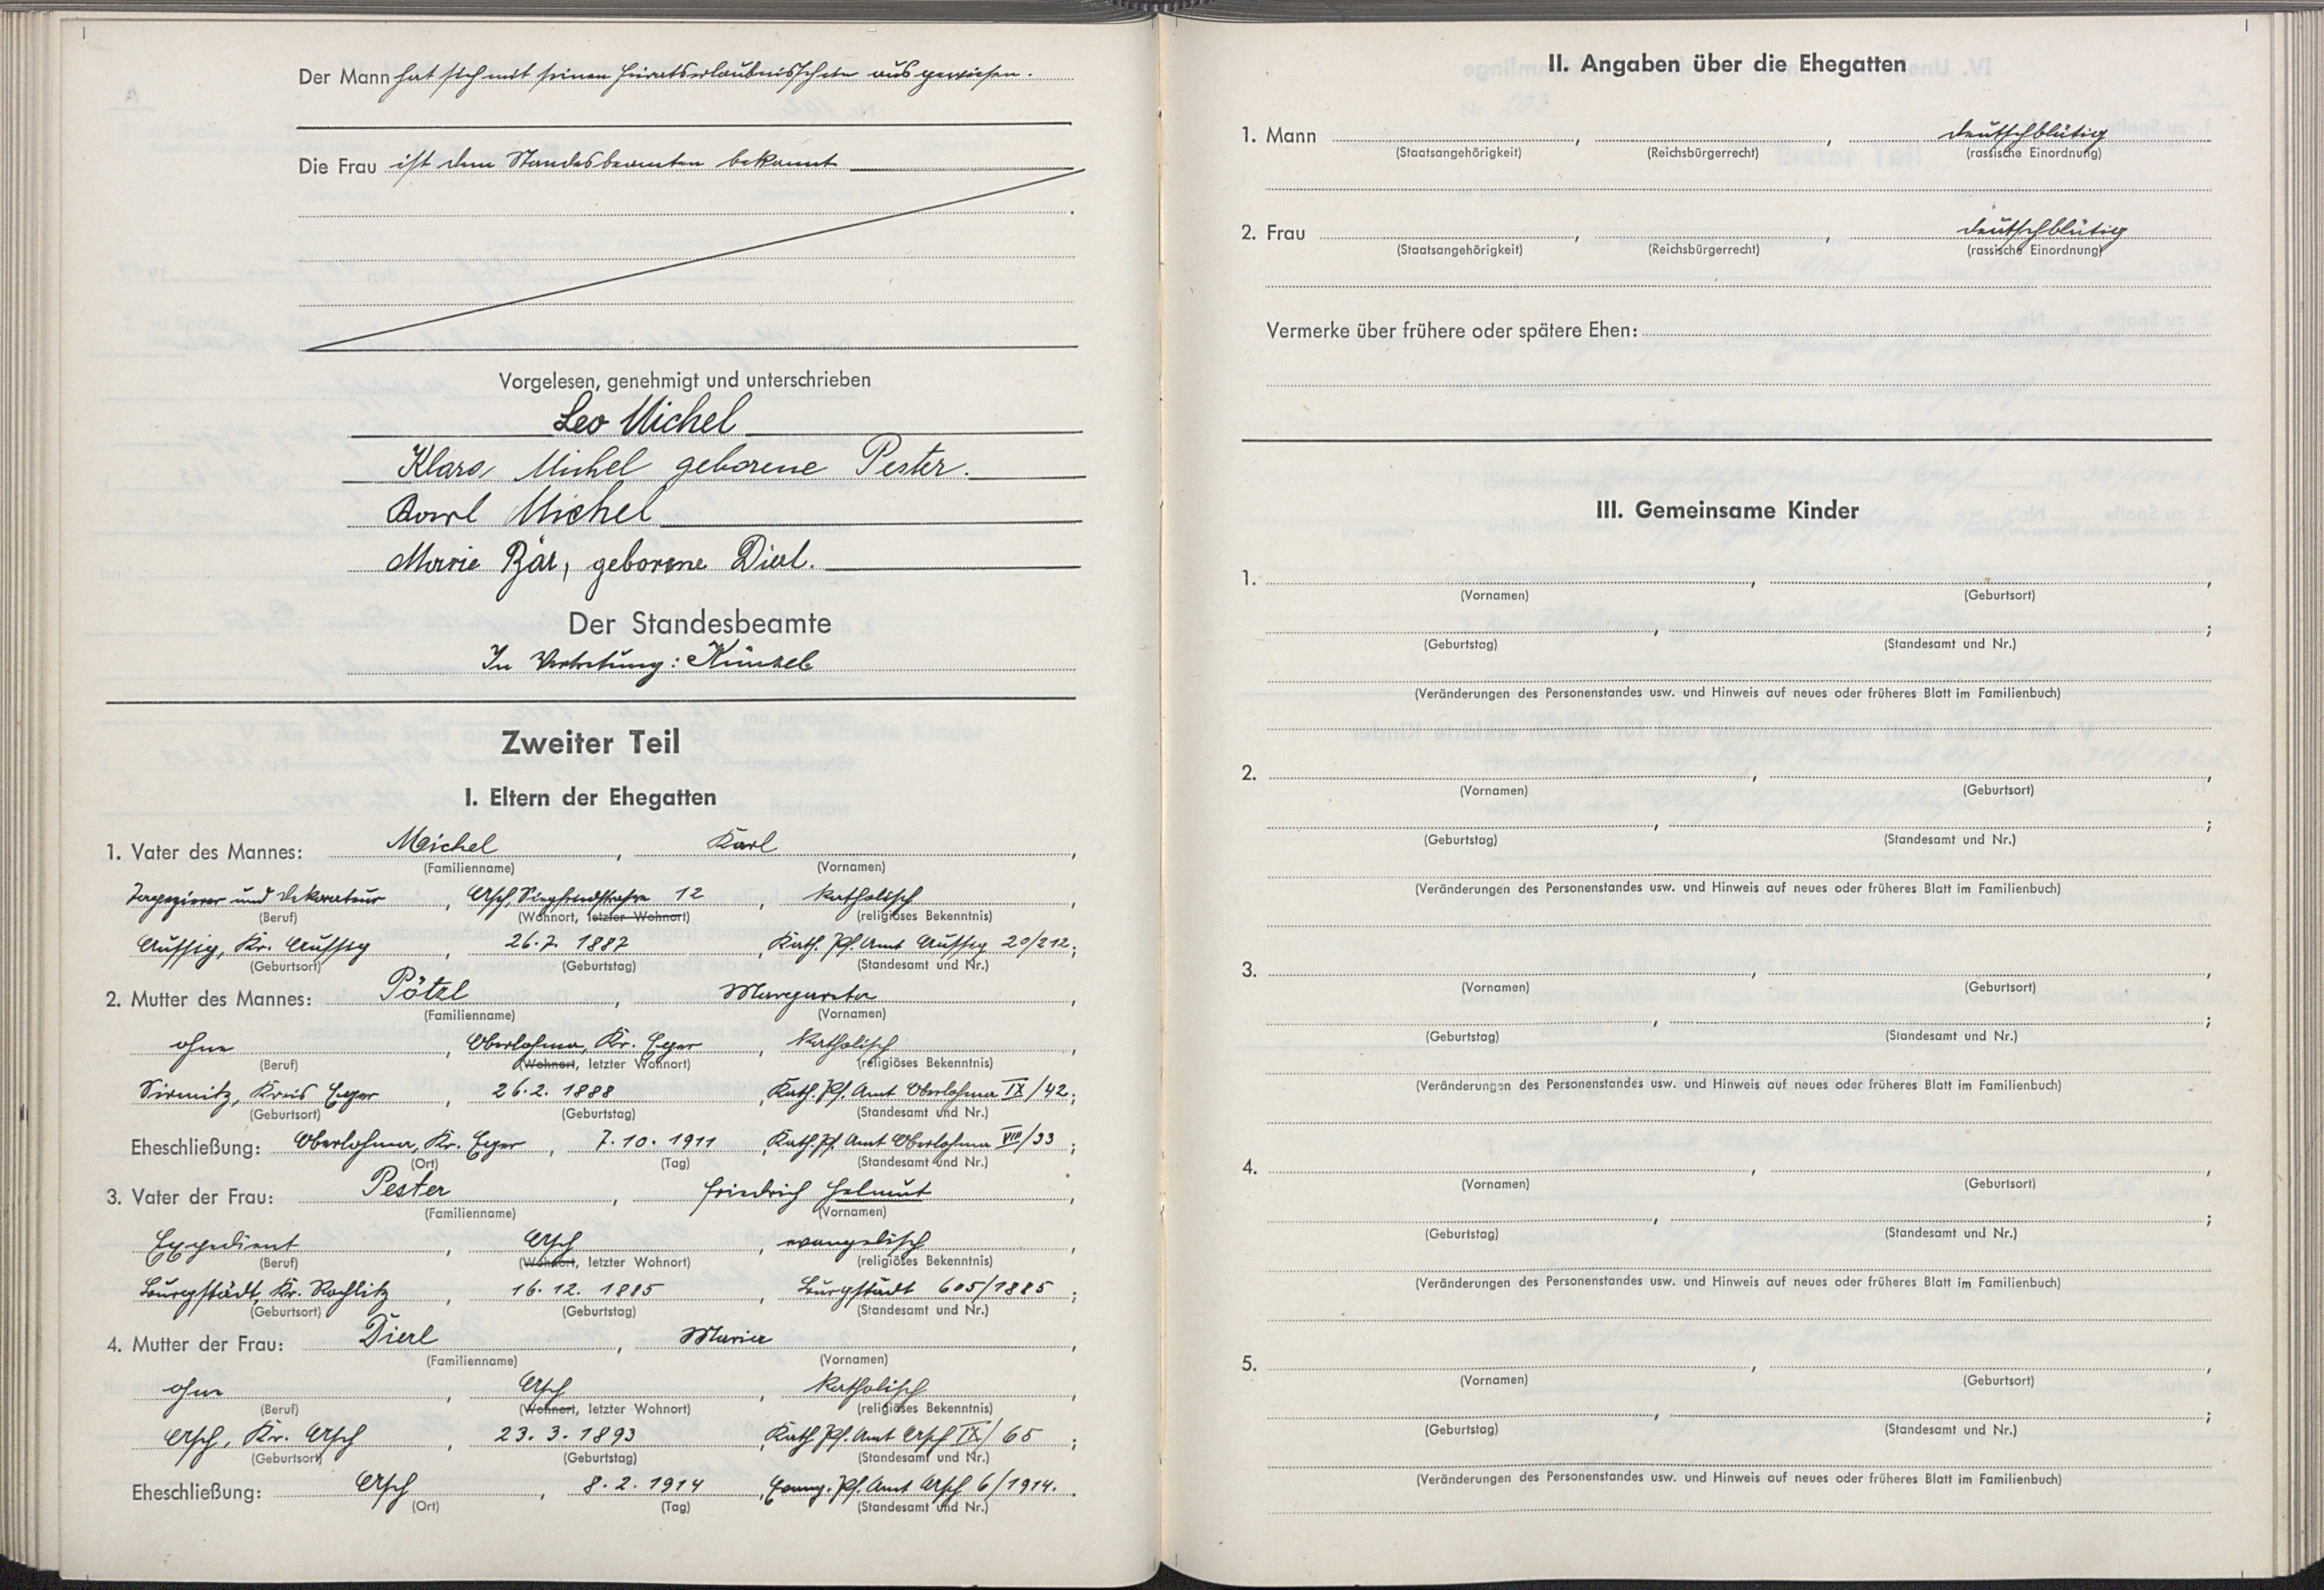 Der Mann hat sich mit seinem Heiratserlaubnisschein ausgewiesen.
Die Frau ist dem Standesbeamten bekannt
Vorgelesen, genehmigt und unterschrieben
Leo Michel
Klara Michel geborene Pester.
Karl Michel
Marie Bär, geborene Dierl.
Der Standesbeamte
In Vertretung: Künzel
Zweiter Teil
I. Eltern der Ehegatten
1. Vater des Mannes: Michel, Karl,
(Familienname) (Vornamen)
Tapezierer und Dekorateur, Asch, Siegfriedstrasse 12, katholisch,
(Beruf) (Wohnort, letzter Wohnort) (religiöses Bekenntnis)
Aussig, Kr. Aussig, 26.7. 1887, Kath. Pf. Amt Aussig 20/212;
(Geburtsort) (Geburtstag) (Standesamt und Nr.)
2. Mutter des Mannes: Pötzl, Margareta,
(Familienname) (Vornamen)
ohne, Oberlohma, Kr. Eger, katholisch,
(Beruf) (Wohnort, letzter Wohnort) (religiöses Bekenntnis)
Sirmitz, Kreis Eger, 26.2. 1888, Kath. Pf. Amt Oberlohma IX/42;
(Geburtsort) (Geburtstag) (Standesamt und Nr.)
Eheschließung: Oberlohma, Kr. Eger, 7.10. 1911, Kath. Pf. Amt Oberlohma VIII/33;
(Ort) (Tag) (Standesamt und Nr.)
3. Vater der Frau: Pester, Friedrich Helmut,
(Familienname) (Vornamen)
Expedient, Asch, evangelisch,
(Beruf) (Wohnort, letzter Wohnort) (religiöses Bekenntnis)
Burgstädt, Kr. Rochlitz, 16.12. 1885, Burgstädt 605/1885;
(Geburtsort) (Geburtstag) (Standesamt und Nr.)
4. Mutter der Frau: Dierl, Maria,
(Familienname) (Vornamen)
ohne, Asch, katholisch,
(Beruf) (Wohnort, letzter Wohnort) (religiöses Bekenntnis)
Asch, Kr. Asch, 23.3.1893, Kath. Pf. Amt Asch IX/65;
(Geburtsort) (Geburtstag) (Standesamt und Nr.)
Eheschließung: Asch, 8.2.1914, Evang. Pf. Amt Asch 6/1914.
(Ort) (Tag) (Standesamt und Nr.)
II. Angaben über die Ehegatten
1. Mann , , deutschblütig
(Staatsangehörigkeit) (Reichsbürgerrecht) (rassische Einordnung)
2. Frau , , deutschblütig
(Staatsangehörigkeit) (Reichsbürgerrecht) (rassische Einordnung)
Vermerke über frühere oder spätere Ehen:
III. Gemeinsame Kinder
1. , ,
(Vornamen) (Geburtsort)
, ;
(Geburtstag) (Standesamt und Nr.)
(Veränderungen des Personenstandes usw. und Hinweis auf neues oder früheres Blatt im Familienbuch)
2. , ,
(Vornamen) (Geburtsort)
, ;
(Geburtstag) (Standesamt und Nr.)
(Veränderungen des Personenstandes usw. und Hinweis auf neues oder früheres Blatt im Familienbuch)
3. , ,
(Vornamen) (Geburtsort)
, ;
(Geburtstag) (Standesamt und Nr.)
(Veränderungen des Personenstandes usw. und Hinweis auf neues oder früheres Blatt im Familienbuch)
4. , ,
(Vornamen) (Geburtsort)
, ;
(Geburtstag) (Standesamt und Nr.)
(Veränderungen des Personenstandes usw. und Hinweis auf neues oder früheres Blatt im Familienbuch)
5. , ,
(Vornamen) (Geburtsort)
, ;
(Geburtstag) (Standesamt und Nr.)
(Veränderungen des Personenstandes usw. und Hinweis auf neues oder früheres Blatt im Familienbuch)